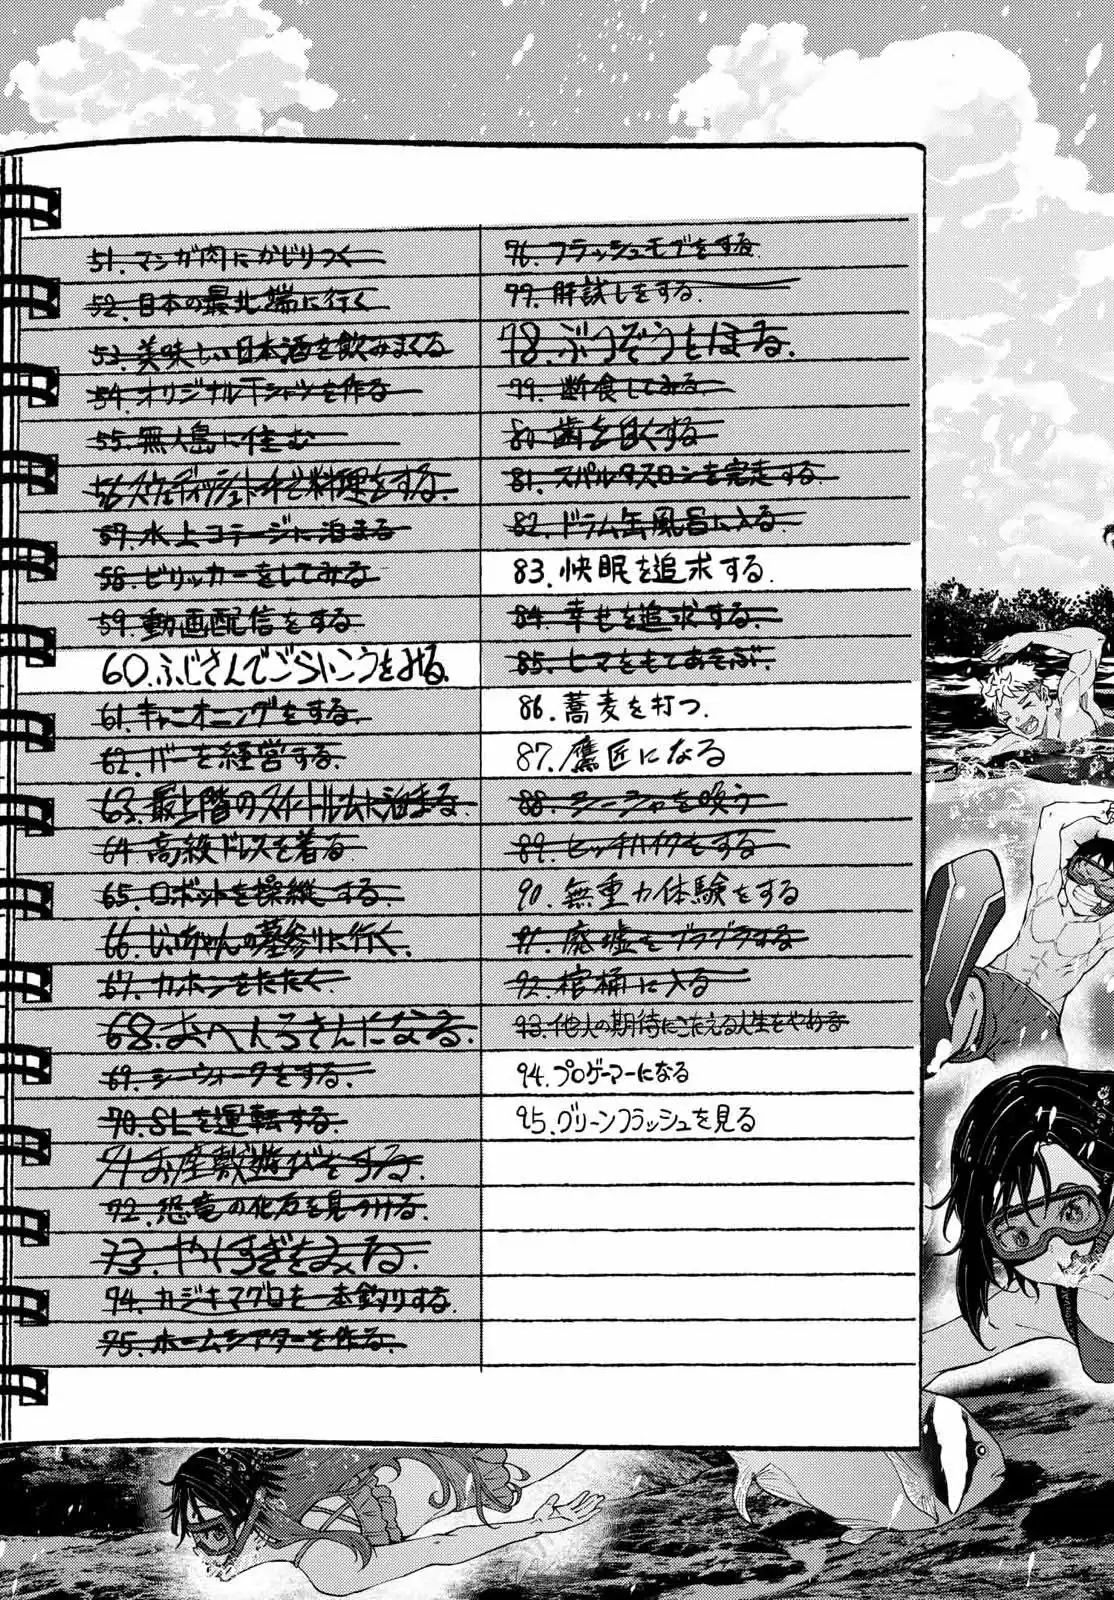 51. マンガ肉にかじりつく
52. 日本の最北端に行く
53. 美味しい日本酒を飲みまくる
54. オリジナルTシャツを作る
55. 無人島に住む
56. スウェディッシュトーチで料理をする
57. 水上コテージに泊まる
58. ビリッカーをしてみる
59. 動画配信をする
60. ふじさんでごらいこうをみる
61. キャニオニングをする
62. バーを経営する
63. 最上階のスイートルームに泊まる
64. 高級ドレスを着る
65. ロボットを操縦する
66. じいちゃんの墓参りに行く
67. カホンをたたく
68. おへんろさんになる
69. シーウォークをする
70. SLを運転する
71. お座敷遊びをする
72. 恐竜の化石を見つける
73. やくすぎをみる
74. カジキマグロを一本釣りする
75. ホームシアターを作る
76. フラッシュモブをする
77. 肝試しをする
78. ぶつぞうをほる
79. 断食してみる
80. 歯を白くする
81. スパルタスロンを完走する
82. ドラム缶風呂に入る
83. 快眠を追求する
84. 幸せを追求する
85. ヒマをもてあそぶ
86. 蕎麦を打つ
87. 鷹匠になる
88. シーシャを吸う
89. ヒッチハイクをする
90. 無重力体験をする
91. 廃墟をブラブラする
92. 棺桶に入る
93. 他人の期待にこたえる人生をやめる
94. プロゲーマーになる
95. グリーンフラッシュを見る